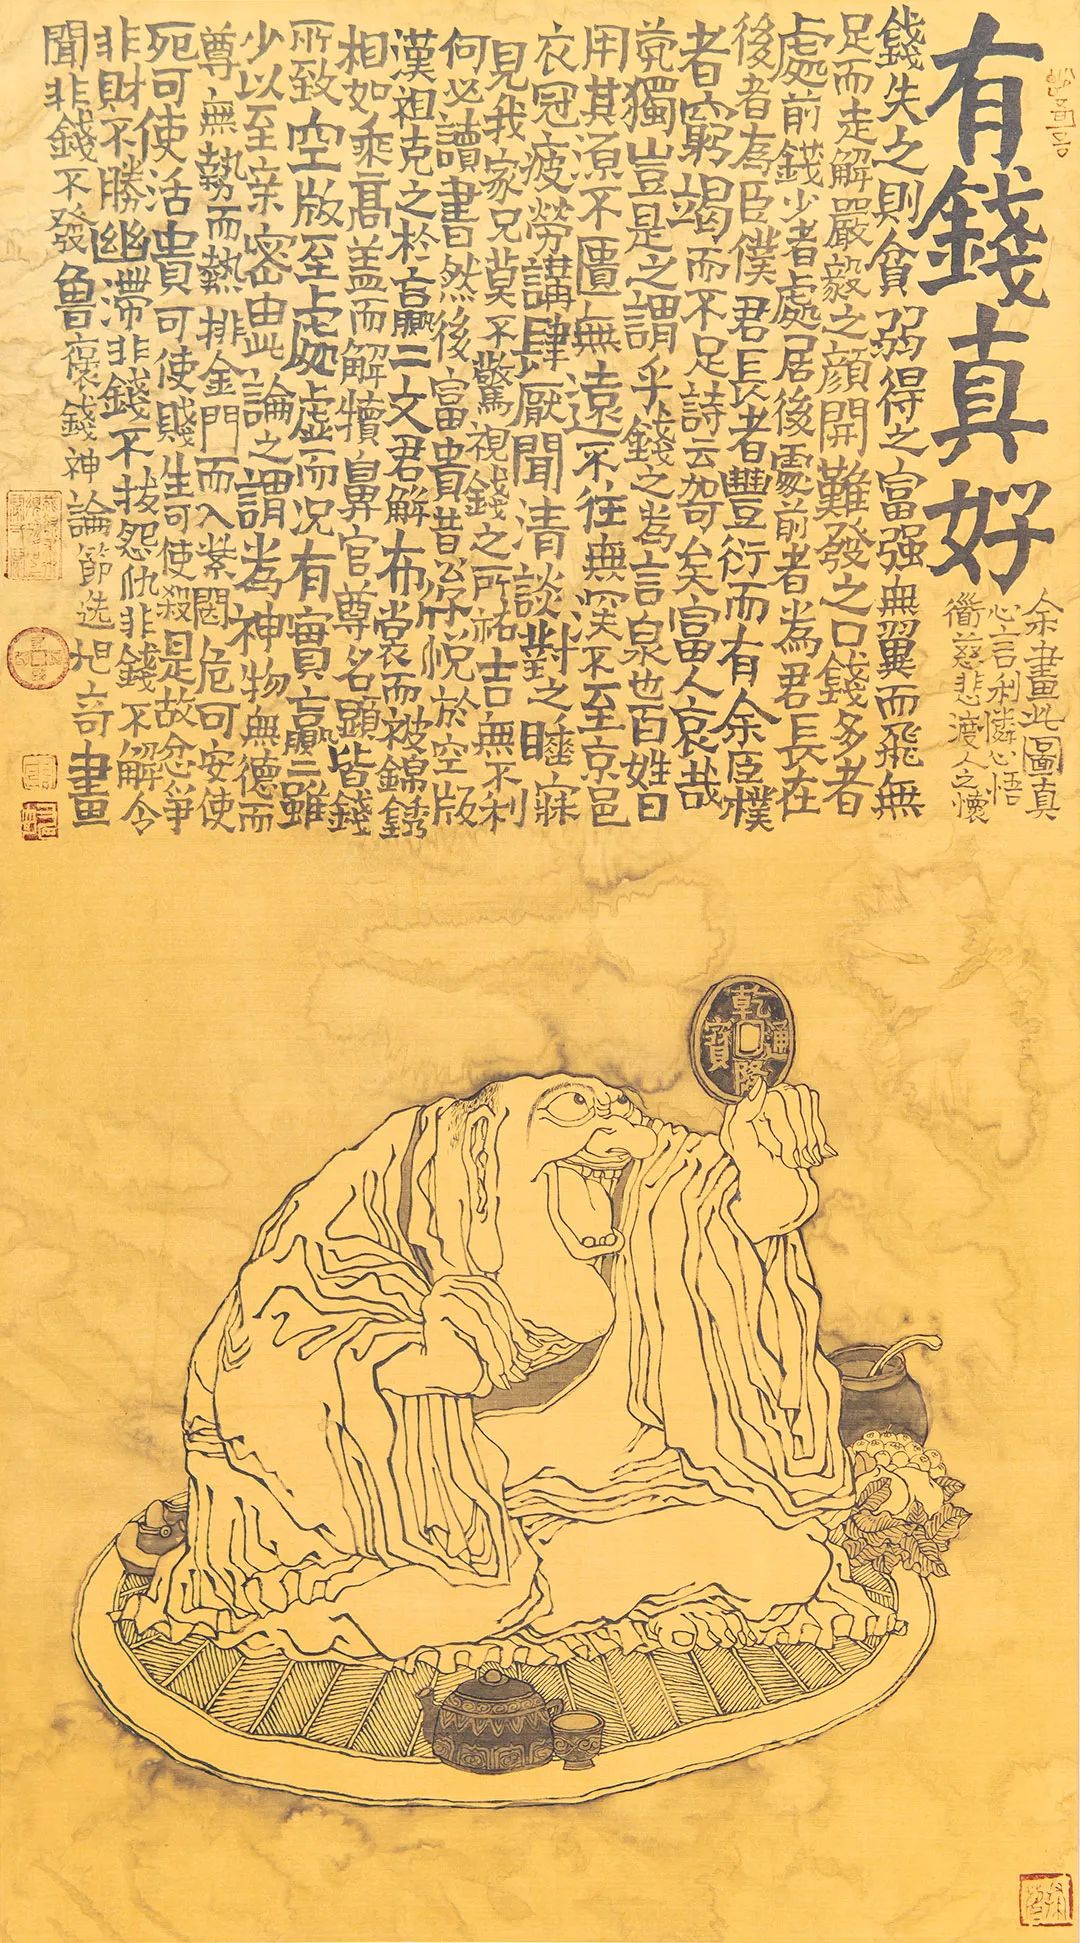 有錢真好
余畫此圖真
心言利憐心悟
慈悲渡人之懷
錢失之則貧弱得之富强無翼而飛無
足而走解嚴毅之顔開難發之口錢多者
處前錢少者處居後處前者為君長在
後者為臣僕君長者豐衍而有余臣僕
者窮竭而不足詩云哿矣富人哀哉
煢獨豈是之謂乎錢之為言泉也百姓日
用其源不匱無遠不往無深不至京邑
衣冠疲勞講肆厭聞清談對之睡寐
見我家兄莫不驚視錢之所祐吉無不利
何必讀書然後富貴昔公忻悅於空版
漢祖克之於嬴二文君解布裳而被錦銹
相如乘高盖而解犢鼻官尊名顯皆錢
所致空版至處虛而况有實嬴二雖
少以至亲密由此論之謂為神物無德而
尊無勢而熱排金門而入紫闥危可安使
死可使活貴可使賤生可使殺是故忿爭
非財不勝幽滯非錢不拔怨仇非錢不解令
聞非錢不發魯褒錢神論節选旭奇畫
乾隆通寶